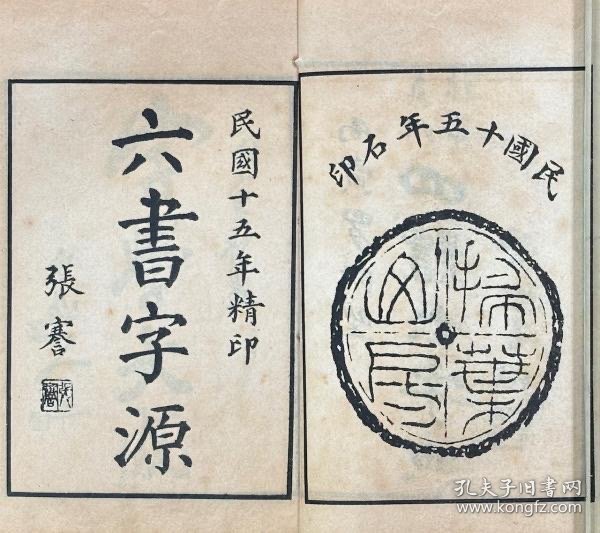 民國十五年石印
掃葉山房
民國十五年精印
六書字源
張謇
孔夫子旧书网
www.kongfz.com